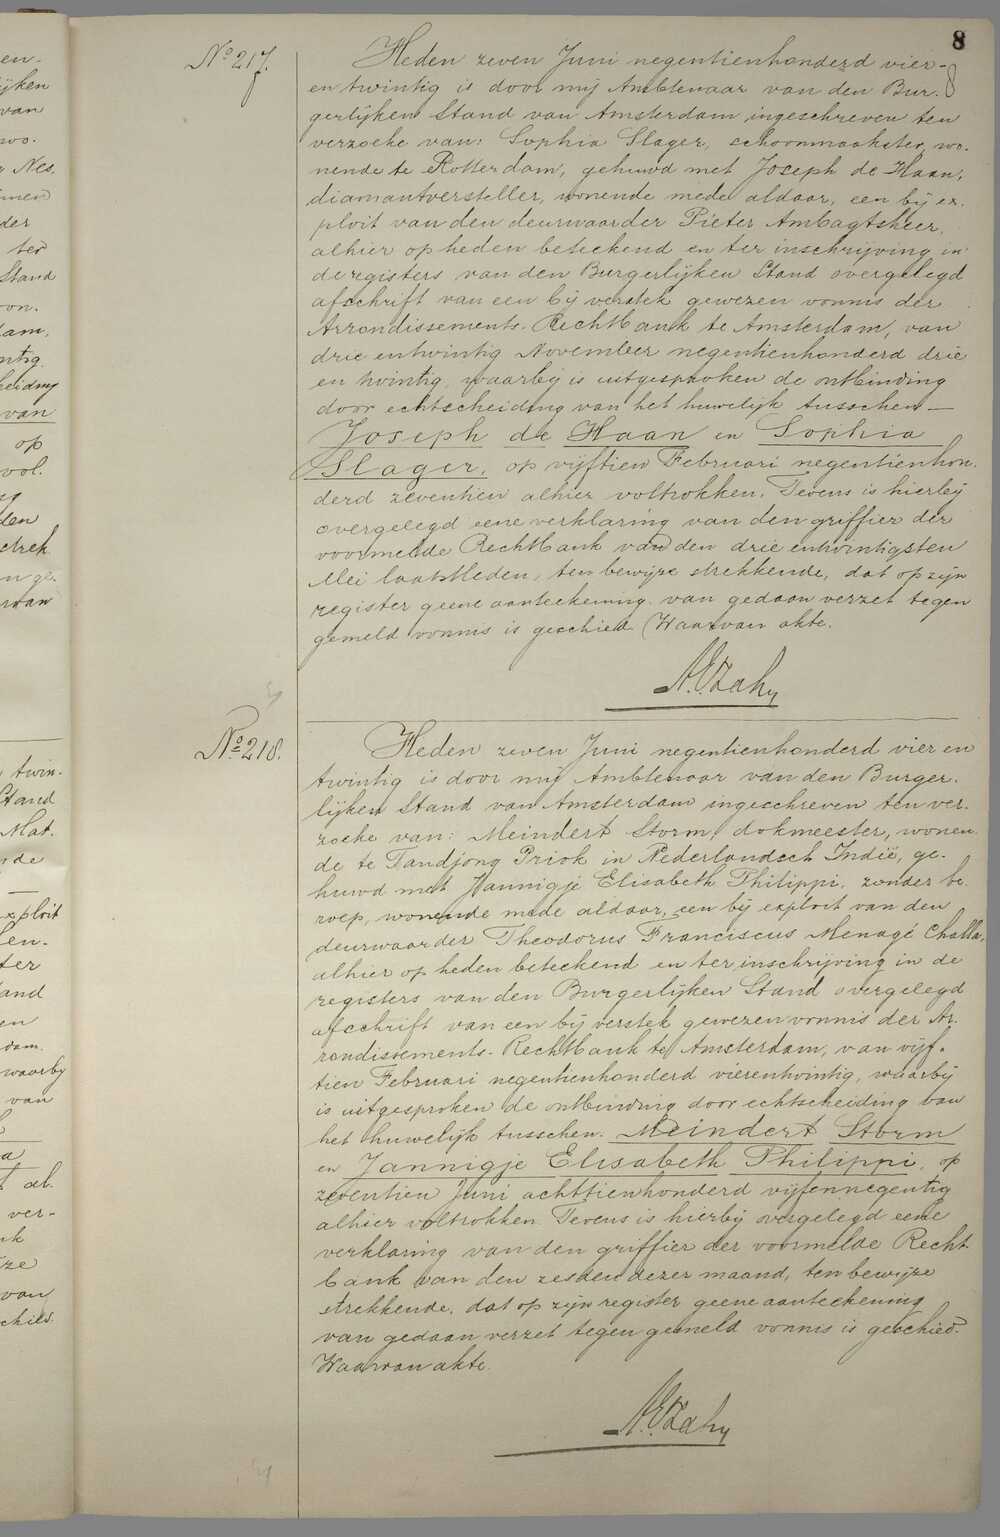 8
8
No 217.
Heden zeven Juni negentienhonderd vier-
en twintig is door mij Ambtenaar van den Bur-
gerlijken Stand van Amsterdam ingeschreven ten
verzoeke van: Sophia Slager, schoonmaakster, wo-
nende te Rotterdam, gehuwd met Joseph de Haan,
diamantversteller, wonende mede aldaar, een bij ex-
ploit van den deurwaarder Pieter Ambagtsheer,
alhier op heden beteekend en ter inschrijving in
de registers van den Burgerlijken Stand overgelegd
afschrift van een bij verstek gewezen vonnis der
Arrondissements-Rechtbank te Amsterdam, van
drie entwintig November negentienhonderd drie
en twintig, waarbij is uitgesproken de ontbinding
door echtscheiding van het huwelijk tusschen —
Joseph de Haan en Sophia
Slager, op vijftien Februari negentienhon-
derd zeventien alhier voltrokken. Tevens is hierbij
overgelegd eene verklaring van den griffier der
voormelde Rechtbank van den drie entwintigsten
Mei laatstleden, ten bewijze strekkende, dat op zijn
register geene aanteekening van gedaan verzet tegen
gemeld vonnis is geschied. Waarvan akte.
No 218.
Heden zeven Juni negentienhonderd vier en
twintig is door mij Ambtenaar van den Burger-
lijken Stand van Amsterdam ingeschreven ten ver-
zoeke van: Meindert Storm, dokmeester, wonen-
de te Tandjong Priok in Nederlandsch Indië, ge-
huwd met Jannigje Elisabeth Philippi, zonder be-
roep, wonende mede aldaar, een bij exploit van den
deurwaarder Theodorus Franciscus Menagé Challa,
alhier op heden beteekend en ter inschrijving in de
registers van den Burgerlijken Stand overgelegd
afschrift van een bij verstek gewezen vonnis der Ar-
rondissements-Rechtbank te Amsterdam, van vijf-
tien Februari negentienhonderd vierentwintig, waarbij
is uitgesproken de ontbinding door echtscheiding van
het huwelijk tusschen: Meindert Storm
en Jannigje Elisabeth Philippi, op
zeventien Juni achttienhonderd vijfennegentig
alhier voltrokken. Tevens is hierbij overgelegd eene
verklaring van den griffier der voormelde Recht-
bank van den zesden dezer maand, ten bewijze
strekkende, dat op zijn register geene aanteekening
van gedaan verzet tegen gemeld vonnis is geschied.
Waarvan akte.